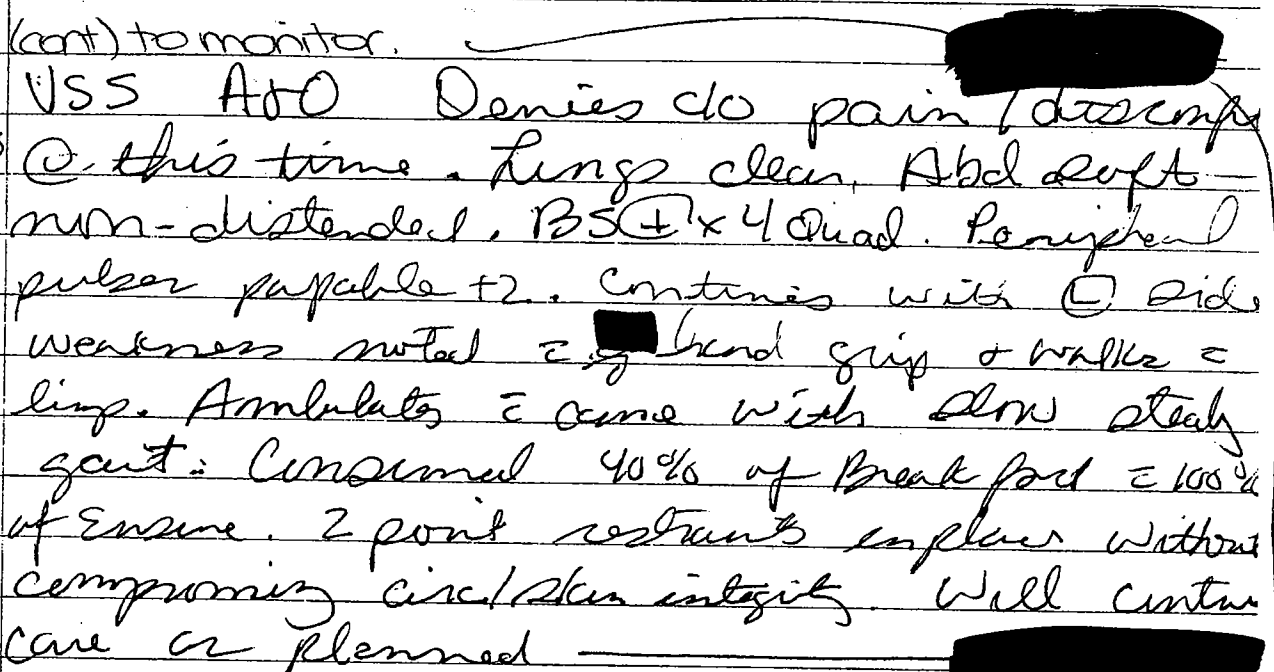 (cont) to monitor.
VSS A+O Denies c/o pain / discomf
@ this time. Lungs clear, Abd soft
non-distended. BS (+) x 4 Quad. Peripheral
pulses papable +2. Continues with (L) side
weakness noted c̄ hand grip + walks c̄
limp. Ambulates c̄ cane with slow steady
gait. Consumed 40% of Breakfast c̄ 100%
of Ensure. 2 point restraints inplace without
compromising circ/skin integrity. Will continue
care as planned